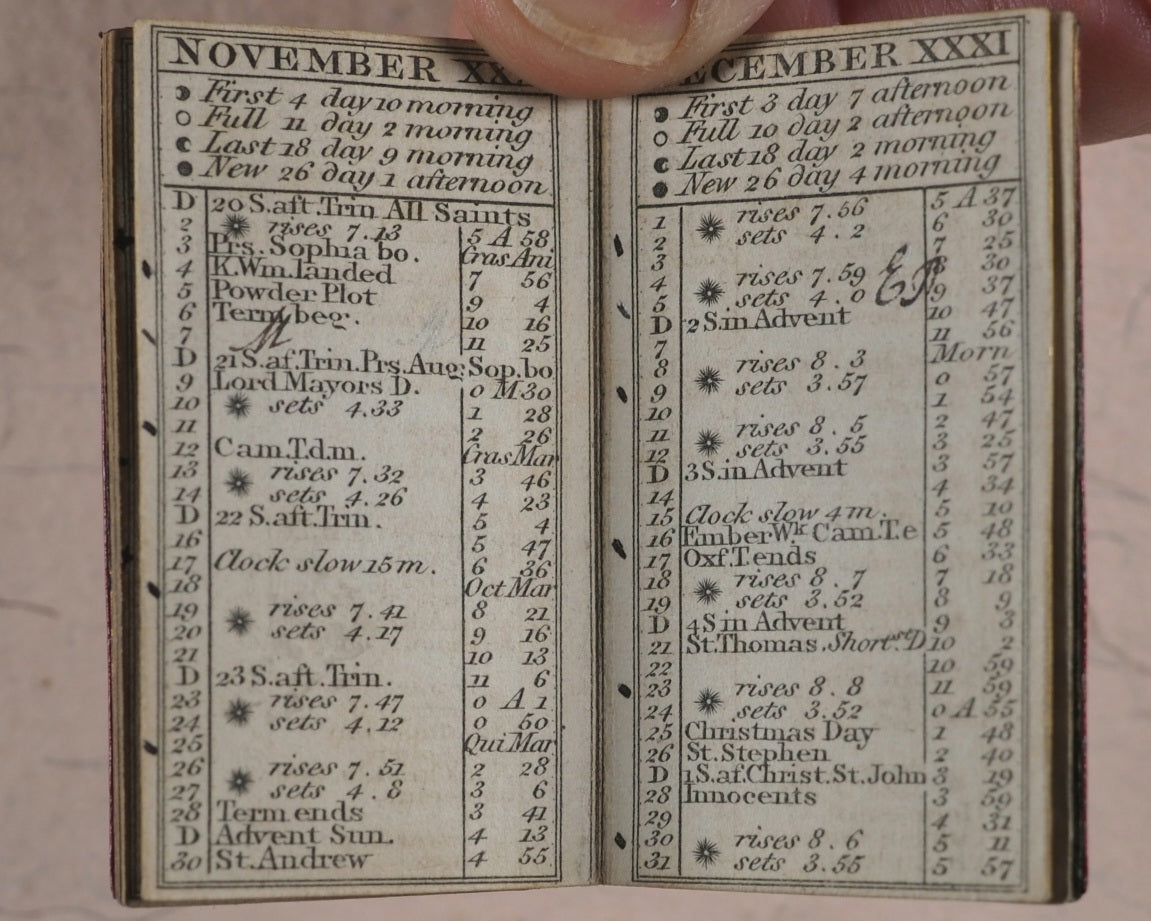 NOVEMBER XX
First 4 day 10 morning
Full 11 day 2 morning
Last 18 day 9 morning
New 26 day 1 afternoon
D 20 S.aft.Trin All Saints
2 rises 7.13 5 A 58
3 Prs. Sophia bo. Cras Ani
4 K.Wm.landed 7 56
5 Powder Plot 9 4
6 Term beg. 10 16
7 11 25
D 21 S.af.Trin.Prs.Aug: Sop.bo
9 Lord Mayors D. 0 M 30
10 sets 4.33 1 28
11 2 26
12 Cam.T.d.m. Cras Mar
13 rises 7.32 3 46
14 sets 4.26 4 23
D 22 S.aft.Trin. 5 4
16 5 47
17 Clock slow 15 m. 6 36
18 Oct Mar
19 rises 7.41 8 21
20 sets 4.17 9 16
21 10 13
D 23 S.aft.Trin. 11 6
23 rises 7.47 0 A 1
24 sets 4.12 0 50
25 Qui Mar
26 rises 7.51 2 28
27 sets 4.8 3 6
28 Term ends 3 41
D Advent Sun. 4 13
30 St. Andrew 4 55
ECEMBER XXXI
First 3 day 7 afternoon
Full 10 day 2 afternoon
Last 18 day 2 morning
New 26 day 4 morning
1 rises 7.56 5 A 37
2 sets 4.2 6 30
3 7 25
4 rises 7.59 8 30
5 sets 4.0 9 37
D 2 S.in Advent 10 47
7 11 56
8 rises 8.3 Morn
9 sets 3.57 0 57
10 1 54
11 rises 8.5 2 47
12 sets 3.55 3 25
D 3 S.in Advent 3 57
14 4 34
15 Clock slow 4 m. 5 10
16 Ember Wk Cam.T.e 5 48
17 Oxf.T.ends 6 33
18 rises 8.7 7 18
19 sets 3.52 8 9
D 4 S in Advent 9 3
21 St.Thomas.Shorst D 10 2
22 10 59
23 rises 8.8 11 59
24 sets 3.52 0 A 55
25 Christmas Day 1 48
26 St.Stephen 2 40
D 1 S.af.Christ.St.John 3 19
28 Innocents 3 59
29 4 31
30 rises 8.6 5 11
31 sets 3.55 5 57